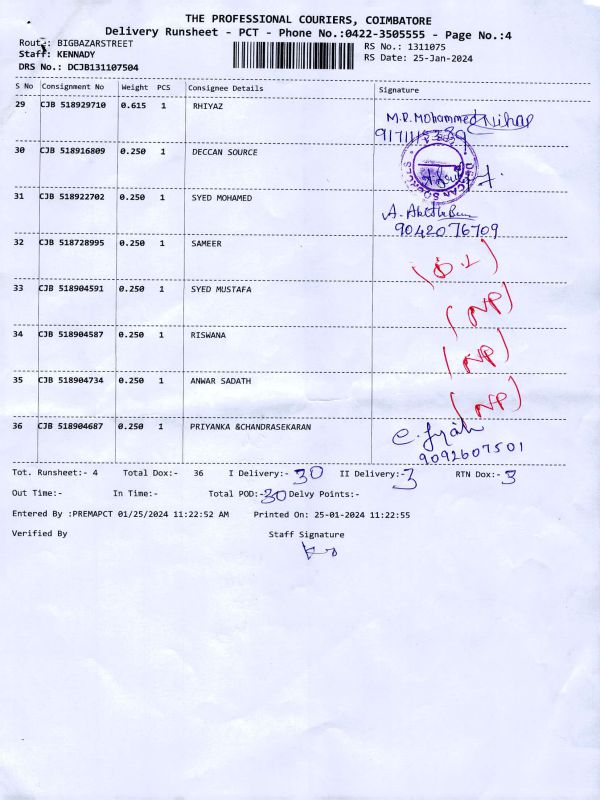 THE PROFESSIONAL COURIERS, COIMBATORE
Delivery Runsheet - PCT - Phone No.:0422-3505555 - Page No.:4
Route: BIGBAZARSTREET
RS No.: 1311075
Staff: KENNADY
RS Date: 25-Jan-2024
DRS No.: DCJB131107504
S No Consignment No Weight PCS Consignee Details Signature
29 CJB 518929710 0.615 1 RHIYAZ
M.P. Mohammed Nihal
30 CJB 518916809 0.250 1 DECCAN SOURCE
DECCAN SOURCES
31 CJB 518922702 0.250 1 SYED MOHAMED
9042076709
32 CJB 518728995 0.250 1 SAMEER
33 CJB 518904591 0.250 1 SYED MUSTAFA (NP)
34 CJB 518904587 0.250 1 RISWANA (NP)
35 CJB 518904734 0.250 1 ANWAR SADATH (NP)
36 CJB 518904687 0.250 1 PRIYANKA &CHANDRASEKARAN
9092607501
Tot. Runsheet:- 4 Total Dox:- 36 I Delivery:- 30 II Delivery:- 3 RTN Dox:- 3
Out Time:- In Time:- Total POD:- 30 Delvy Points:-
Entered By :PREMAPCT 01/25/2024 11:22:52 AM Printed On: 25-01-2024 11:22:55
Verified By Staff Signature